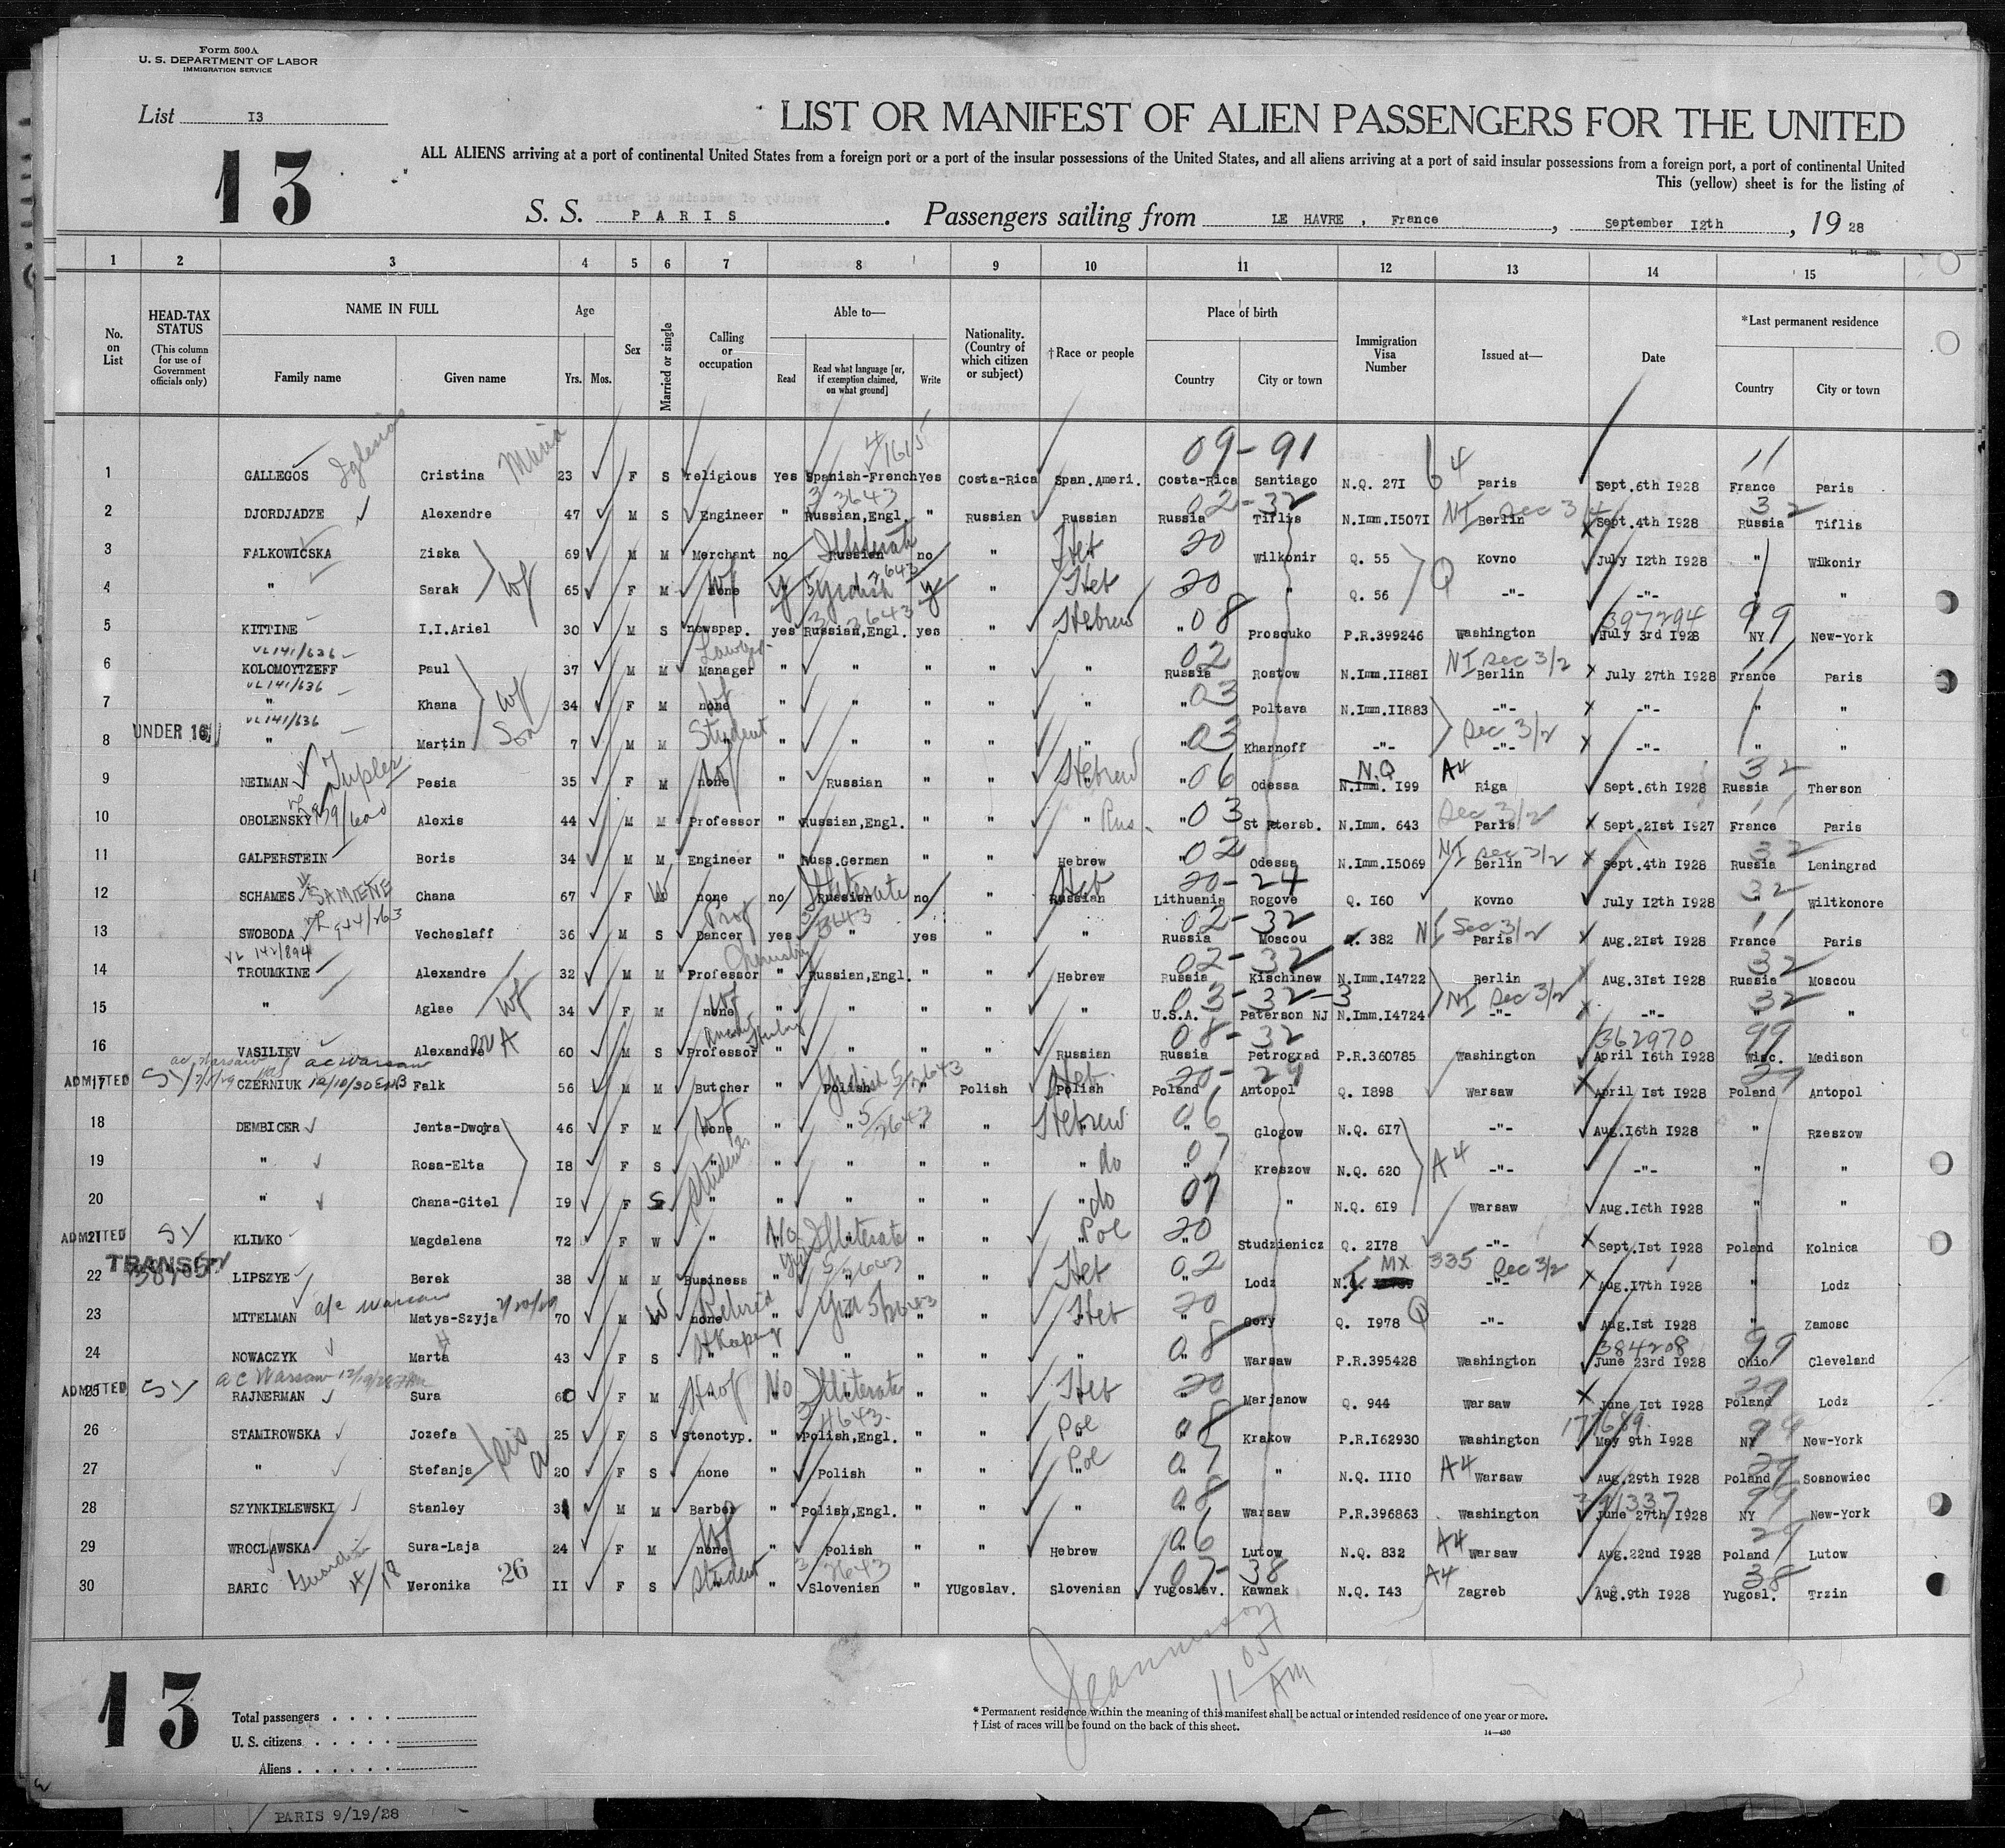 Form 500A
U. S. DEPARTMENT OF LABOR
IMMIGRATION SERVICE
List I3
13
LIST OR MANIFEST OF ALIEN PASSENGERS FOR THE UNITED
ALL ALIENS arriving at a port of continental United States from a foreign port or a port of the insular possessions of the United States, and all aliens arriving at a port of said insular possessions from a foreign port, a port of continental United
This (yellow) sheet is for the listing of
S. S. PARIS. Passengers sailing from LE HAVRE , France, September I2th, 19 28
1 2 3 4 5 6 7 8 9 10 11 12 13 14 15
No. on List
HEAD-TAX STATUS (This column for use of Government officials only)
NAME IN FULL
Family name Given name
Age Yrs. Mos.
Sex
Married or single
Calling or occupation
Able to— Read Read what language [or, if exemption claimed, on what ground] Write
Nationality. (Country of which citizen or subject)
†Race or people
Place of birth Country City or town
Immigration Visa Number
Issued at—
Date
*Last permanent residence Country City or town
09-91 4/1615 64 11
1 GALLEGOS Iglesias Cristina Maria 23 F S religious yes Spanish-French yes Costa-Rica Span.Ameri. Costa-Rica Santiago N.Q. 27I Paris Sept.6th I928 France Paris
3 3643 02-32 NI Sec 3/2 32
2 DJORDJADZE Alexandre 47 M S Engineer " Russian,Engl. " Russian Russian Russia Tiflis N.Imm.I507I Berlin Sept.4th I928 Russia Tiflis
3 FALKOWICSKA Ziska 69 M M Merchant no Russian Illiterate no " Heb " 20 Wilkonir Q. 55 Kovno July I2th I928 " Wilkonir
4 " Sarah wf 65 F M none wf y Yiddish y " Heb 20 " Q. 56 Q -"- -"- " "
5 KITTINE I.I.Ariel 30 M S newspap. yes Russian,Engl. yes " Hebrew " 08 Proscuko P.R.399246 Washington 397294 July 3rd I928 NY 99 New-York
VL141/636 Lawyer 02 NI Sec 3/2 11
6 KOLOMOYTZEFF Paul 37 M M Manager " " " " " Russia Rostow N.Imm.II88I Berlin July 27th I928 France Paris
VL141/636
7 " Khana wf 34 F M none wf " " " " " " 03 Poltava N.Imm.II883 -"- -"- " "
VL141/636
UNDER 16
8 " Martin Son 7 M M Student " " " " " " 03 Kharnoff -"- Sec 3/2 -"- -"- " "
9 NEIMAN Pesia 35 F M none wf " Russian " " Hebrew " 06 Odessa N.Imm. I99 N.Q A4 Riga Sept.6th I928 Russia 32 Therson
10 OBOLENSKY Alexis 44 M M Professor " Russian,Engl. " " " Rus. " 03 St Petersb. N.Imm. 643 Sec 3/2 Paris Sept.2Ist I927 France 11 Paris
11 GALPERSTEIN Boris 34 M M Engineer " Russ.German " " Hebrew " 02 Odessa N.Imm.I5069 NI Sec 3/2 Berlin Sept.4th I928 Russia 32 Leningrad
12 SCHAMES SAMIENE Chana 67 F W none no Russian Illiterate no " Russian Heb Lithuania 20-24 Rogove Q. I60 Kovno July I2th I928 " 32 Wiltkonore
13 SWOBODA Vecheslaff 36 M S Dancer Prof yes " yes " " Russia 02-32 Moscou 382 NI Sec 3/2 Paris Aug.2Ist I928 France 11 Paris
VL 142/894 Chemistry
14 TROUMKINE Alexandre 32 M M Professor " Russian,Engl. " " Hebrew Russia 02-32 Kischinew N.Imm.I4722 Berlin Aug.3Ist I928 Russia 32 Moscou
15 " Aglae wf 34 F M none wf " " " " " U.S.A. 03-32-3 Paterson NJ N.Imm.I4724 NI Sec 3/2 -"- -"- " 32 "
16 VASILIEV Alexandre 60 M S Professor " " " " Russian Russia 08-32 Petrograd P.R.360785 Washington 362970 April I6th I928 Wisc. 99 Madison
ac Warsaw ac Warsaw
ADMITTED SY
17 CZERNIUK Falk 56 M M Butcher " Polish Yiddish " Polish Polish Heb. Poland 20-29 Antopol Q. I898 Warsaw April Ist I928 Poland Antopol
18 DEMBICER Jenta-Dwojra 46 F M none wf " " " " Hebrew " 06 Glogow N.Q. 6I7 -"- Aug.I6th I928 " Rzeszow
19 " Rosa-Elta I8 F S " student " " " " " do 07 Kreszow N.Q. 620 A4 -"- -"- " "
20 " Chana-Gitel I9 F S " " " " " " do 07 " N.Q. 6I9 Warsaw Aug.I6th I928 " "
ADMITTED SY
21 KLIMKO Magdalena 72 F W " No Illiterate " " Pol " 20 Studzienicz Q. 2I78 -"- Sept.Ist I928 Poland Kolnica
TRANSIT MX 335 Sec 3/2
22 LIPSZYE Berek 38 M M Business " " " " Heb " 02 Lodz -"- Aug.I7th I928 " Lodz
23 MITELMAN a/c Warsaw Matys-Szyja 70 M W none Retired " " " " Heb " 20 Gory Q. I978 Q -"- Aug.Ist I928 " Zamosc
24 NOWACZYK Marta 43 F S " HKeeping " " " " " " 08 Warsaw P.R.395428 Washington 384208 June 23rd I928 Ohio 99 Cleveland
ac Warsaw
ADMITTED SY
25 RAJNERMAN Sura 60 F M No Illiterate " " Heb " 20 Marjanow Q. 944 Warsaw June Ist I928 Poland 29 Lodz
26 STAMIROWSKA Jozefa 25 F S Stenotyp. " Polish,Engl. " " Pol " 08 Krakow P.R.I62930 Washington 177689 May 9th I928 NY New-York
27 " Stefanja sis 20 F S none " Polish " " Pol " 07 " N.Q. III0 A4 Warsaw Aug.29th I928 Poland 29 Sosnowiec
28 SZYNKIELEWSKI Stanley M M Barber " Polish,Engl. " " " " 08 Warsaw P.R.396863 Washington June 27th I928 NY 99 New-York
29 WROCLAWSKA Sura-Laja 24 F M none wf " Polish " " Hebrew " 06 Lutow N.Q. 832 A4 Warsaw Aug.22nd I928 Poland 29 Lutow
30 BARIC Veronika 26 II F S Student " Slovenian " YUgoslav. Slovenian Yugoslav. 07-38 Kawnak N.Q. I43 A4 Zagreb Aug.9th I928 Yugosl. 38 Trzin
11 05 AM
13
Total passengers
U. S. citizens
Aliens
* Permanent residence within the meaning of this manifest shall be actual or intended residence of one year or more.
† List of races will be found on the back of this sheet.
14—430
PARIS 9/19/28